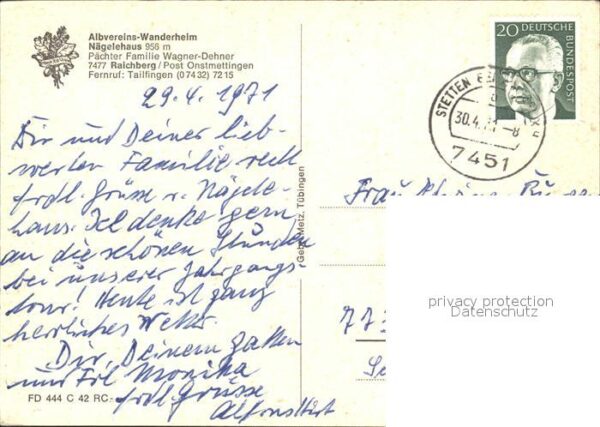 Albvereins-Wanderheim
Nägelehaus 956 m
Pächter Familie Wagner-Dehner
7477 Raichberg/Post Onstmettingen
Fernruf: Tailfingen (07432) 7215
29.4.1971
Dir und Deiner lieb-
werten Familie recht
frdl. Grüsse v. Nägele-
haus. Ich denke gern
an die schönen Stunden
bei unserer Jahrgangs-
tour! Heute ist ganz
herrliches Wetter.
Dir, Deinem Gatten
und Frl Monika
frdl. Grüsse
FD 444 C 42 RC
Gebr. Metz, Tübingen
20 DEUTSCHE
BUNDESPOST
STETTEN
30.4.71-8
7451
Frau
privacy protection
Datenschutz
77